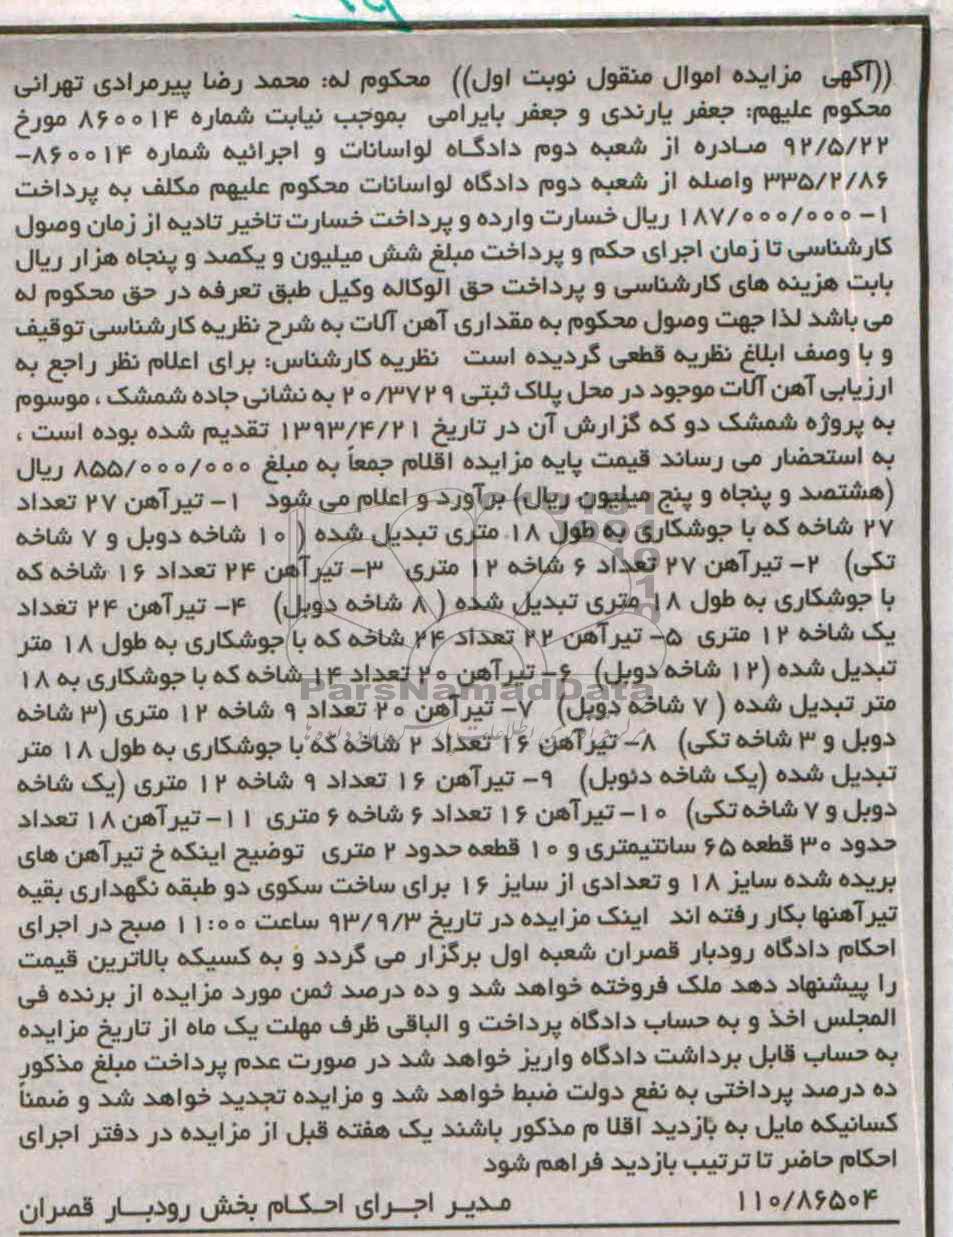 ((آگهی مزایده اموال منقول نوبت اول)) محکوم له: محمد رضا پیرمرادی تهرانی
محکوم علیهم: جعفر یارندی و جعفر بایرامی بموجب نیابت شماره ۸۶۰۰۱۴ مورخ
۹۲/۵/۲۲ صادره از شعبه دوم دادگاه لواسانات و اجرائیه شماره ۸۶۰۰۱۴-
۳۳۵/۲/۸۶ واصله از شعبه دوم دادگاه لواسانات محکوم علیهم مکلف به پرداخت
۱- ۱۸۷/۰۰۰/۰۰۰ ریال خسارت وارده و پرداخت خسارت تاخیر تادیه از زمان وصول
کارشناسی تا زمان اجرای حکم و پرداخت مبلغ شش میلیون و یکصد و پنجاه هزار ریال
بابت هزینه های کارشناسی و پرداخت حق الوکاله وکیل طبق تعرفه در حق محکوم له
می باشد لذا جهت وصول محکوم به مقداری آهن آلات به شرح نظریه کارشناسی توقیف
و با وصف ابلاغ نظریه قطعی گردیده است نظریه کارشناس: برای اعلام نظر راجع به
ارزیابی آهن آلات موجود در محل پلاک ثبتی ۲۰/۳۷۲۹ به نشانی جاده شمشک، موسوم
به پروژه شمشک دو که گزارش آن در تاریخ ۱۳۹۳/۴/۲۱ تقدیم شده بوده است ،
به استحضار می رساند قیمت پایه مزایده اقلام جمعاً به مبلغ ۸۵۵/۰۰۰/۰۰۰ ریال
(هشتصد و پنجاه و پنج میلیون ریال) برآورد و اعلام می شود ۱- تیرآهن ۲۷ تعداد
۲۷ شاخه که با جوشکاری به طول ۱۸ متری تبدیل شده (۱۰ شاخه دوبل و ۷ شاخه
تکی) ۲- تیرآهن ۲۷ تعداد ۶ شاخه ۱۲ متری ۳- تیرآهن ۲۴ تعداد ۱۶ شاخه که
با جوشکاری به طول ۱۸ متری تبدیل شده ( ۸ شاخه دوبل) ۴- تیرآهن ۲۴ تعداد
یک شاخه ۱۲ متری ۵- تیرآهن ۲۲ تعداد ۲۴ شاخه که با جوشکاری به طول ۱۸ متر
تبدیل شده (۱۲ شاخه دوبل) ۶- تیرآهن ۲۰ تعداد ۱۴ شاخه که با جوشکاری به ۱۸
متر تبدیل شده ( ۷ شاخه دوبل) ۷- تیرآهن ۲۰ تعداد ۹ شاخه ۱۲ متری (۳ شاخه
دوبل و ۳ شاخه تکی) ۸- تیرآهن ۱۶ تعداد ۲ شاخه که با جوشکاری به طول ۱۸ متر
تبدیل شده (یک شاخه دئوبل) ۹- تیرآهن ۱۶ تعداد ۹ شاخه ۱۲ متری (یک شاخه
دوبل و ۷ شاخه تکی) ۱۰- تیرآهن ۱۶ تعداد ۶ شاخه ۶ متری ۱۱- تیرآهن ۱۸ تعداد
حدود ۳۰ قطعه ۶۵ سانتیمتری و ۱۰ قطعه حدود ۲ متری توضیح اینکه خ تیرآهن های
بریده شده سایز ۱۸ و تعدادی از سایز ۱۶ برای ساخت سکوی دو طبقه نگهداری بقیه
تیرآهنها بکار رفته اند اینک مزایده در تاریخ ۹۳/۹/۳ ساعت ۱۱:۰۰ صبح در اجرای
احکام دادگاه رودبار قصران شعبه اول برگزار می گردد و به کسیکه بالاترین قیمت
را پیشنهاد دهد ملک فروخته خواهد شد و ده درصد ثمن مورد مزایده از برنده فی
المجلس اخذ و به حساب دادگاه پرداخت و الباقی ظرف مهلت یک ماه از تاریخ مزایده
به حساب قابل برداشت دادگاه واریز خواهد شد در صورت عدم پرداخت مبلغ مذکور
ده درصد پرداختی به نفع دولت ضبط خواهد شد و مزایده تجدید خواهد شد و ضمناً
کسانیکه مایل به بازدید اقلا م مذکور باشند یک هفته قبل از مزایده در دفتر اجرای
احکام حاضر تا ترتیب بازدید فراهم شود
۱۱۰/۸۶۵۰۴ مدیر اجرای احکام بخش رودبار قصران
ParsNamadData